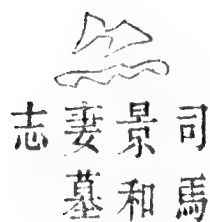 司馬
景和
妻墓
志